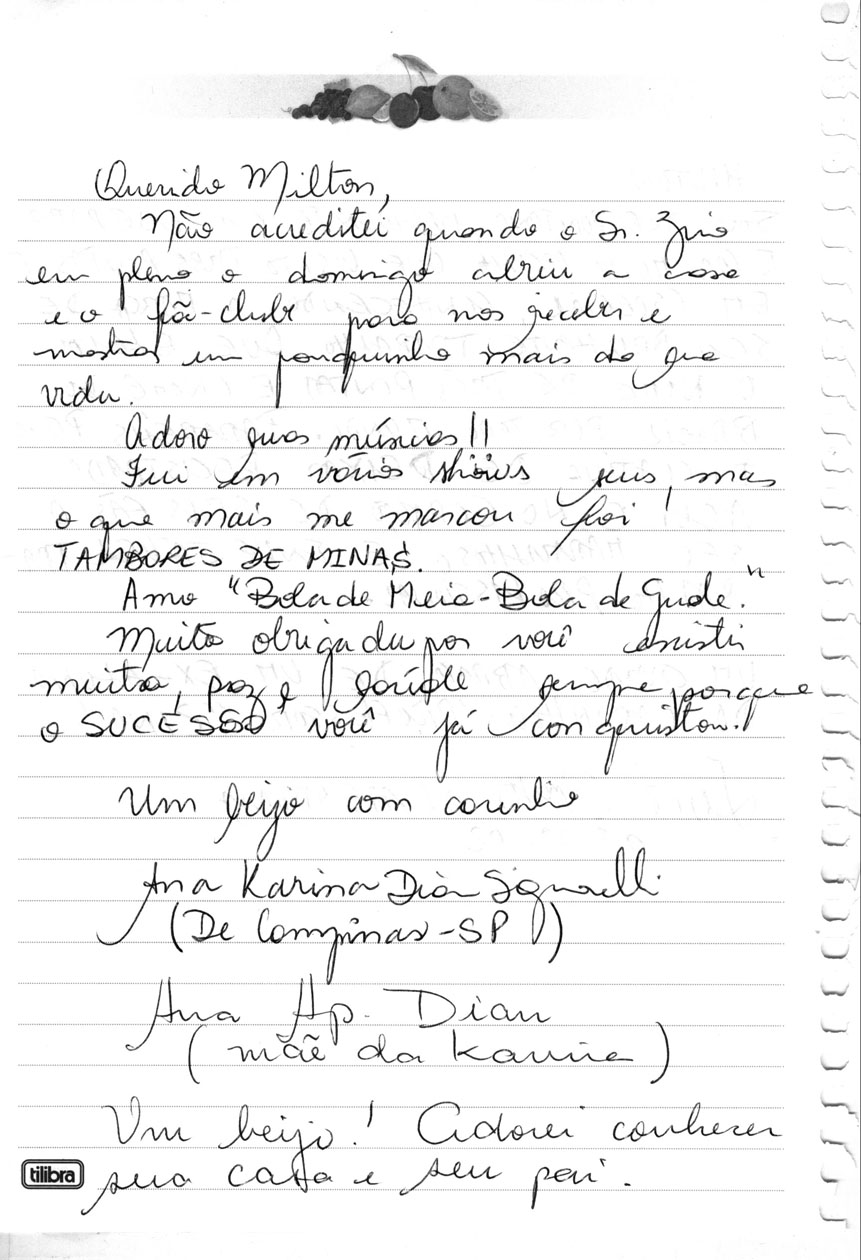 Querido Milton,
Não acreditei quando o Sr. Zino
em pleno o domingo abriu a casa
e o fã-clube para nos receber e
mostrar um pouquinho mais da sua
vida.
Adoro suas músicas!!
Fui em vários shows seus, mas
o que mais me marcou foi
TAMBORES DE MINAS.
Amo "Bola de Meia-Bola de Gude."
Muito obrigada por você existir
muita, paz e saúde sempre porque
o SUCESSO você já conquistou!
Um beijo com carinho
Ana Karina Dian Signorelli
(De Campinas-SP)
Ana Ap. Dian
(mãe da Karina)
Um beijo! Adorei conhecer
sua casa e seu pai.
tilibra